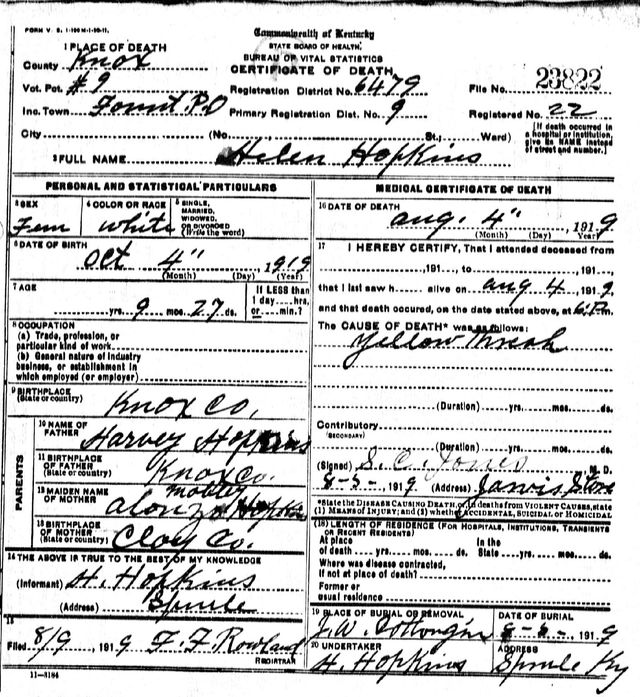 FORM V. S. 1-100 M-1-20-11.
Commonwealth of Kentucky
STATE BOARD OF HEALTH
BUREAU OF VITAL STATISTICS
CERTIFICATE OF DEATH
1 PLACE OF DEATH
County Knox
Vot. Pct. #9
Registration District No. 6479
File No. 23822
Inc. Town P.O
Primary Registration Dist. No. 9
Registered No. 22
City (No. St.; Ward)
[If death occurred in a hospital or institution, give its NAME instead of street and number.]
2 FULL NAME Helen Hopkins
PERSONAL AND STATISTICAL PARTICULARS
3 SEX Fem
4 COLOR OR RACE white
5 SINGLE, MARRIED, WIDOWED, OR DIVORCED (Write the word)
6 DATE OF BIRTH
Oct 4" 1919
(Month) (Day) (Year)
7 AGE
yrs. 9 mos. 27 ds.
If LESS than 1 day....hrs. or....min.?
8 OCCUPATION
(a) Trade, profession, or particular kind of work
(b) General nature of industry business, or establishment in which employed (or employer)
9 BIRTHPLACE (State or country) Knox Co,
PARENTS
10 NAME OF FATHER Harvey Hopkins
11 BIRTHPLACE OF FATHER (State or country) Knox Co.
12 MAIDEN NAME OF MOTHER Hopkins
13 BIRTHPLACE OF MOTHER (State or country) Clay Co.
14 THE ABOVE IS TRUE TO THE BEST OF MY KNOWLEDGE
(Informant) H. Hopkins
(Address) Sprule
15
Filed 8/9 1919 F. F. Rowland
REGISTRAR
11-3184
MEDICAL CERTIFICATE OF DEATH
16 DATE OF DEATH
Aug. 4" , 1919
(Month) (Day) (Year)
17 I HEREBY CERTIFY, That I attended deceased from
, 191..., to , 191...,
that I last saw h alive on aug 4, 1919
and that death occured, on the date stated above, at 6 P.m.
The CAUSE OF DEATH* was as follows:
Yellow
(Duration) yrs. mos. ds.
Contributory
(SECONDARY)
(Duration) yrs. mos. ds.
(Signed) S. C. Jones M. D.
, 1919 (Address) Jarvis Store
*State the DISEASE CAUSING DEATH, or, in deaths from VIOLENT CAUSES, state (1) MEANS OF INJURY; and (2) whether ACCIDENTAL, SUICIDAL or HOMICIDAL
(18) LENGTH OF RESIDENCE (FOR HOSPITALS, INSTITUTIONS, TRANSIENTS OR RECENT RESIDENTS)
At place of death yrs. mos. ds.
In the State yrs. mos. ds.
Where was disease contracted, if not at place of death?
Former or usual residence
19 PLACE OF BURIAL OR REMOVAL
J. W.
DATE OF BURIAL
1919
20 UNDERTAKER
H. Hopkins
ADDRESS
Sprule Ky